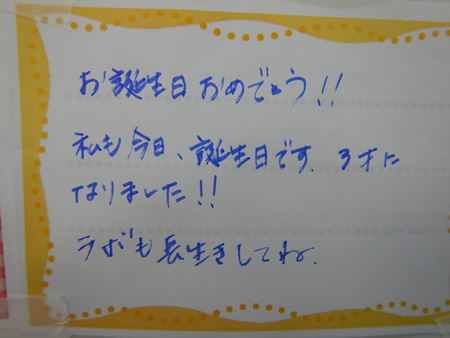 お誕生日おめでとう!!
私も今日、誕生日です。3才に
なりました!!
ラブも長生きしてね。